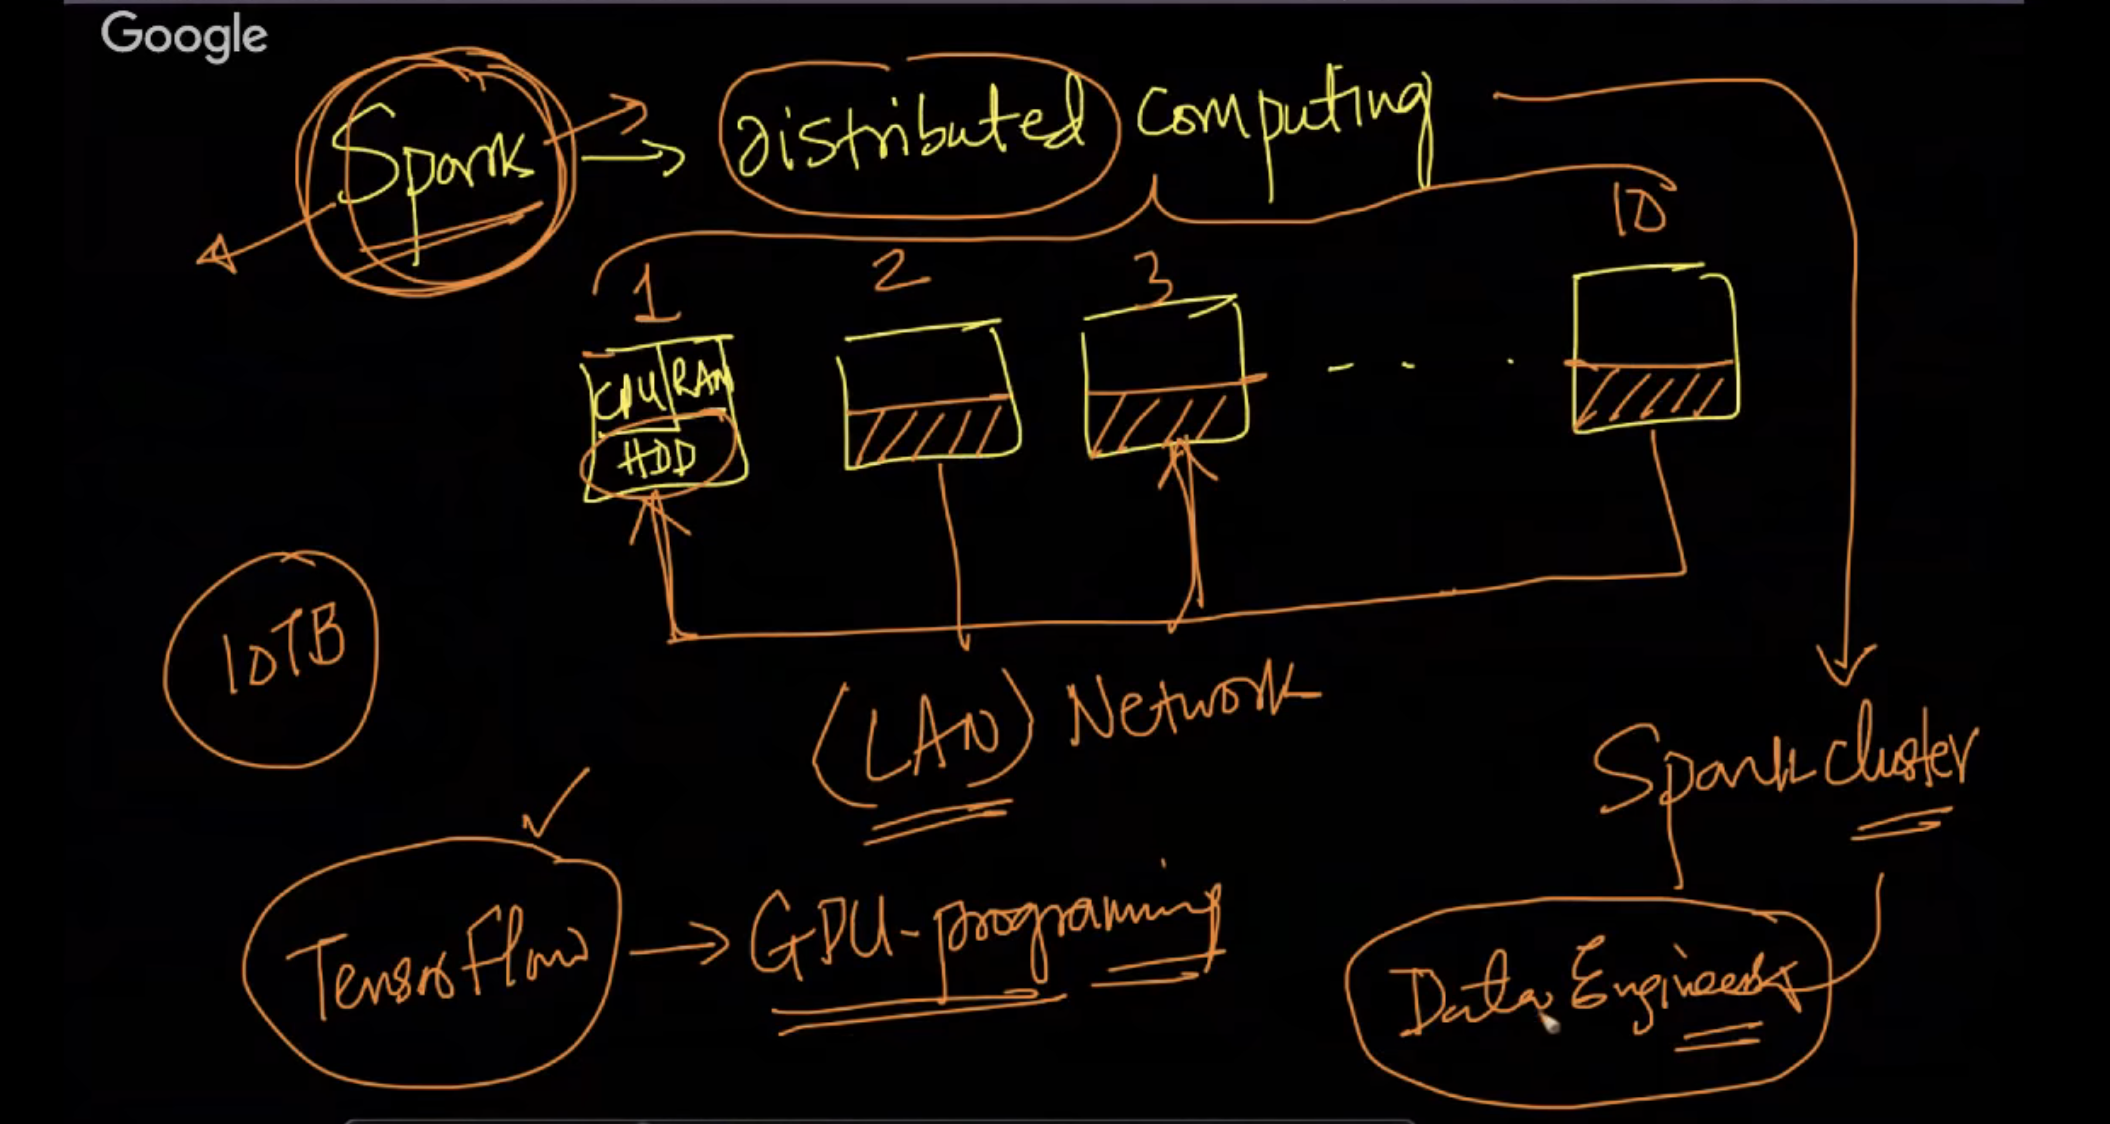 Google
Spark → Distributed Computing
1 2 3 10
CPU RAM
HDD
10TB
(LAN) Network
Spark cluster
TensorFlow → GPU-programming
Data Engineers